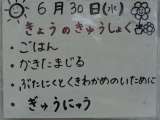 6月30日(水)
きょうのきゅうしょく
・ごはん
・かきたまじる
・ぶたにくとくきわかめのいために
・ぎゅうにゅう